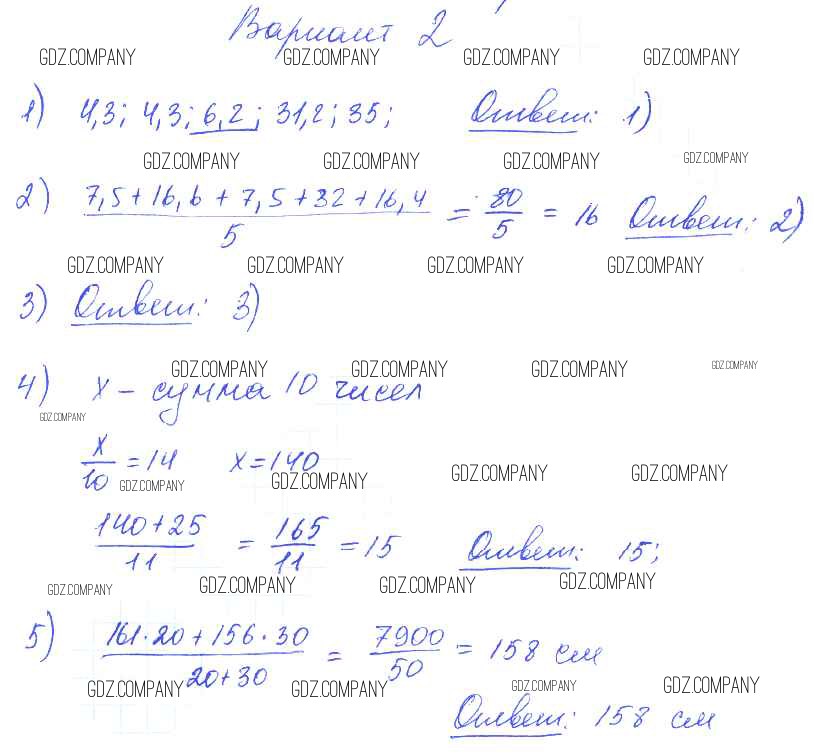 Вариант 2
GDZ.COMPANY GDZ.COMPANY GDZ.COMPANY GDZ.COMPANY
1) 4,3; 4,3; 6,2; 31,2; 35; Ответ: 1)
GDZ.COMPANY GDZ.COMPANY GDZ.COMPANY GDZ.COMPANY
2) 7,5 + 16,6 + 7,5 + 32 + 16,4 / 5 = 80/5 = 16 Ответ: 2)
GDZ.COMPANY GDZ.COMPANY GDZ.COMPANY GDZ.COMPANY
3) Ответ: 3)
GDZ.COMPANY GDZ.COMPANY GDZ.COMPANY GDZ.COMPANY
4) x – сумма 10 чисел
GDZ.COMPANY
x/10 = 14 x = 140
GDZ.COMPANY GDZ.COMPANY GDZ.COMPANY GDZ.COMPANY
140+25 / 11 = 165/11 = 15 Ответ: 15;
GDZ.COMPANY GDZ.COMPANY GDZ.COMPANY GDZ.COMPANY
5) 161·20 + 156·30 / 20+30 = 7900/50 = 158 см
GDZ.COMPANY GDZ.COMPANY GDZ.COMPANY GDZ.COMPANY
Ответ: 158 см